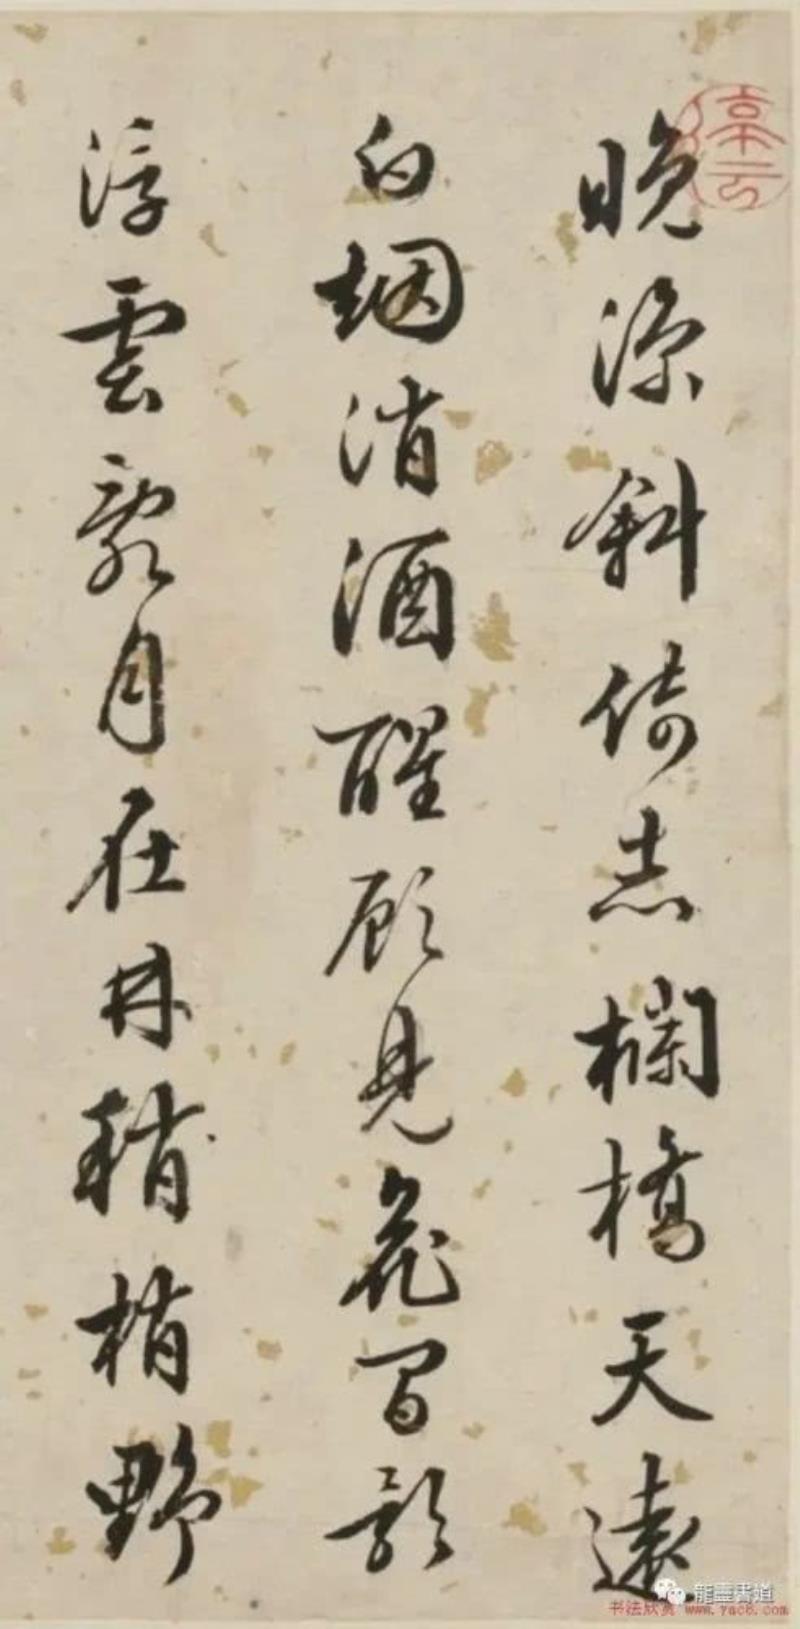 晚涼斜倚赤欄橋天遠
白烟消酒醒顧見花間影
浮雲月在林稍梢野
书法欣赏 www.yac8.com
書道